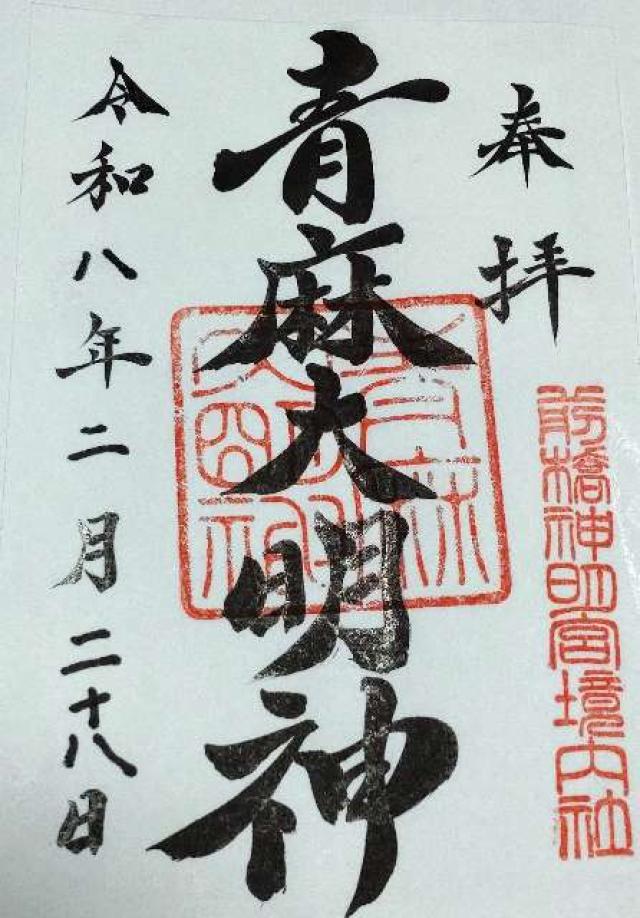 奉拝
前橋神明宮境内社
青麻大明神
令和八年二月二十八日